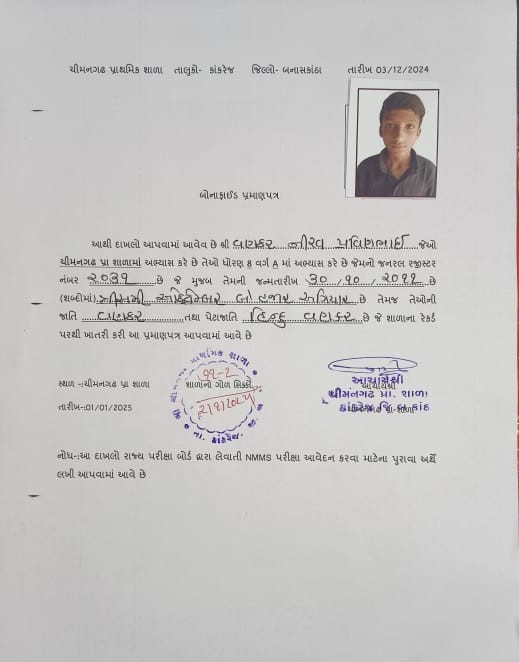 ચીમનગઢ પ્રાથમિક શાળા તાલુકો- કાંકરેજ જિલ્લો- બનાસકાંઠા તારીખ 03/12/2024
બોનાફાઈડ પ્રમાણપત્ર
આથી દાખલો આપવામાં આવેવ છે શ્રી વણકર નીરવ પ્રવિણભાઈ જેઓ
ચીમનગઢ પ્રા શાળામાં અભ્યાસ કરે છે તેઓ ધોરણ 8 વર્ગ A માં અભ્યાસ કરે છે જેમનો જનરલ રજીસ્ટર
નંબર ૨૦૩૧ છે જે મુજબ તેમની જન્મતારીખ ૩૦/૧૦/૨૦૧૧ છે
(શબ્દોમાં) ત્રીસમી ઓક્ટોમ્બર બે હજાર અગિયાર છે તેમજ તેઓની
જાતિ વણકર તથા પેટાજાતિ હિન્દુ વણકર છે જે શાળાના રેકર્ડ
પરથી ખાતરી કરી આ પ્રમાણપત્ર આપવામાં આવે છે
સ્થળ -:ચીમનગઢ પ્રા શાળા શાળાનો ગોળ સિક્કો
આચાર્યશ્રી
ચીમનગઢ પ્રા. શાળા
તારીખ-:01/01/2025
કાંકરેજ જિ.બ.કાંઠા
નોધ-:આ દાખલો રાજ્ય પરીક્ષા બોર્ડ દ્વારા લેવાતી NMMS પરીક્ષા આવેદન કરવા માટેના પુરાવા અર્થે
લખી આપવામાં આવે છે